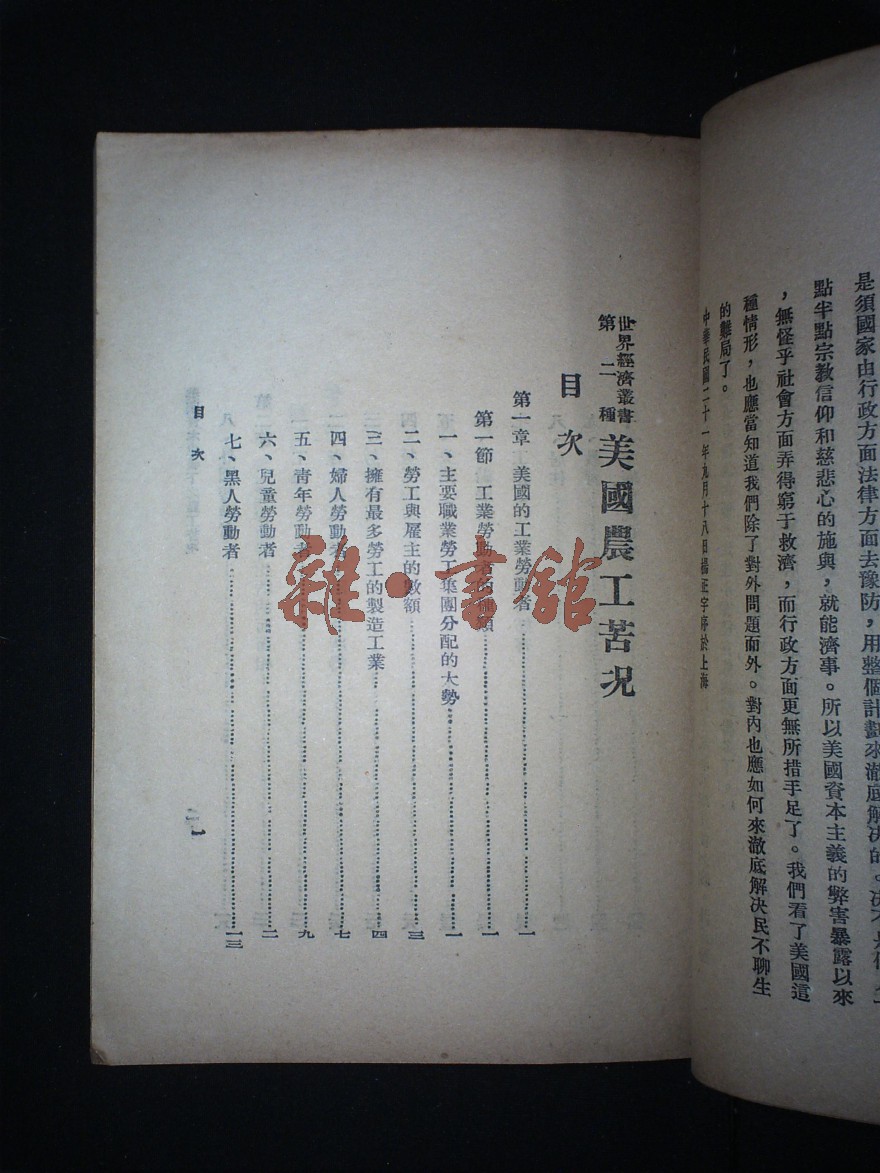 是須國家由行政方面法律方面去豫防，用整個計劃來澈底解決的。決不是
點半點宗教信仰和慈悲心的施與，就能濟事。所以美國資本主義的弊害暴露以來
，無怪乎社會方面弄得窮于救濟，而行政方面更無所措手足了。我們看了美國這
種情形，也應當知道我們除了對外問題而外。對內也應如何來澈底解決民不聊生
的難局了。
中華民國二十一年九月十八日楊正宇序於上海
世界經濟叢書
第二種
美國農工苦況
目次
第一章 美國的工業勞動者…………一
第一節 工業勞動者的種類…………一
一、主要職業勞工集團分配的大勢…………一
二、勞工與雇主的數額…………三
三、擁有最多勞工的製造工業…………四
四、婦人勞動者…………七
五、青年勞動者…………九
六、兒童勞動者…………二
七、黑人勞動者…………一三
目次
一
雜·書館